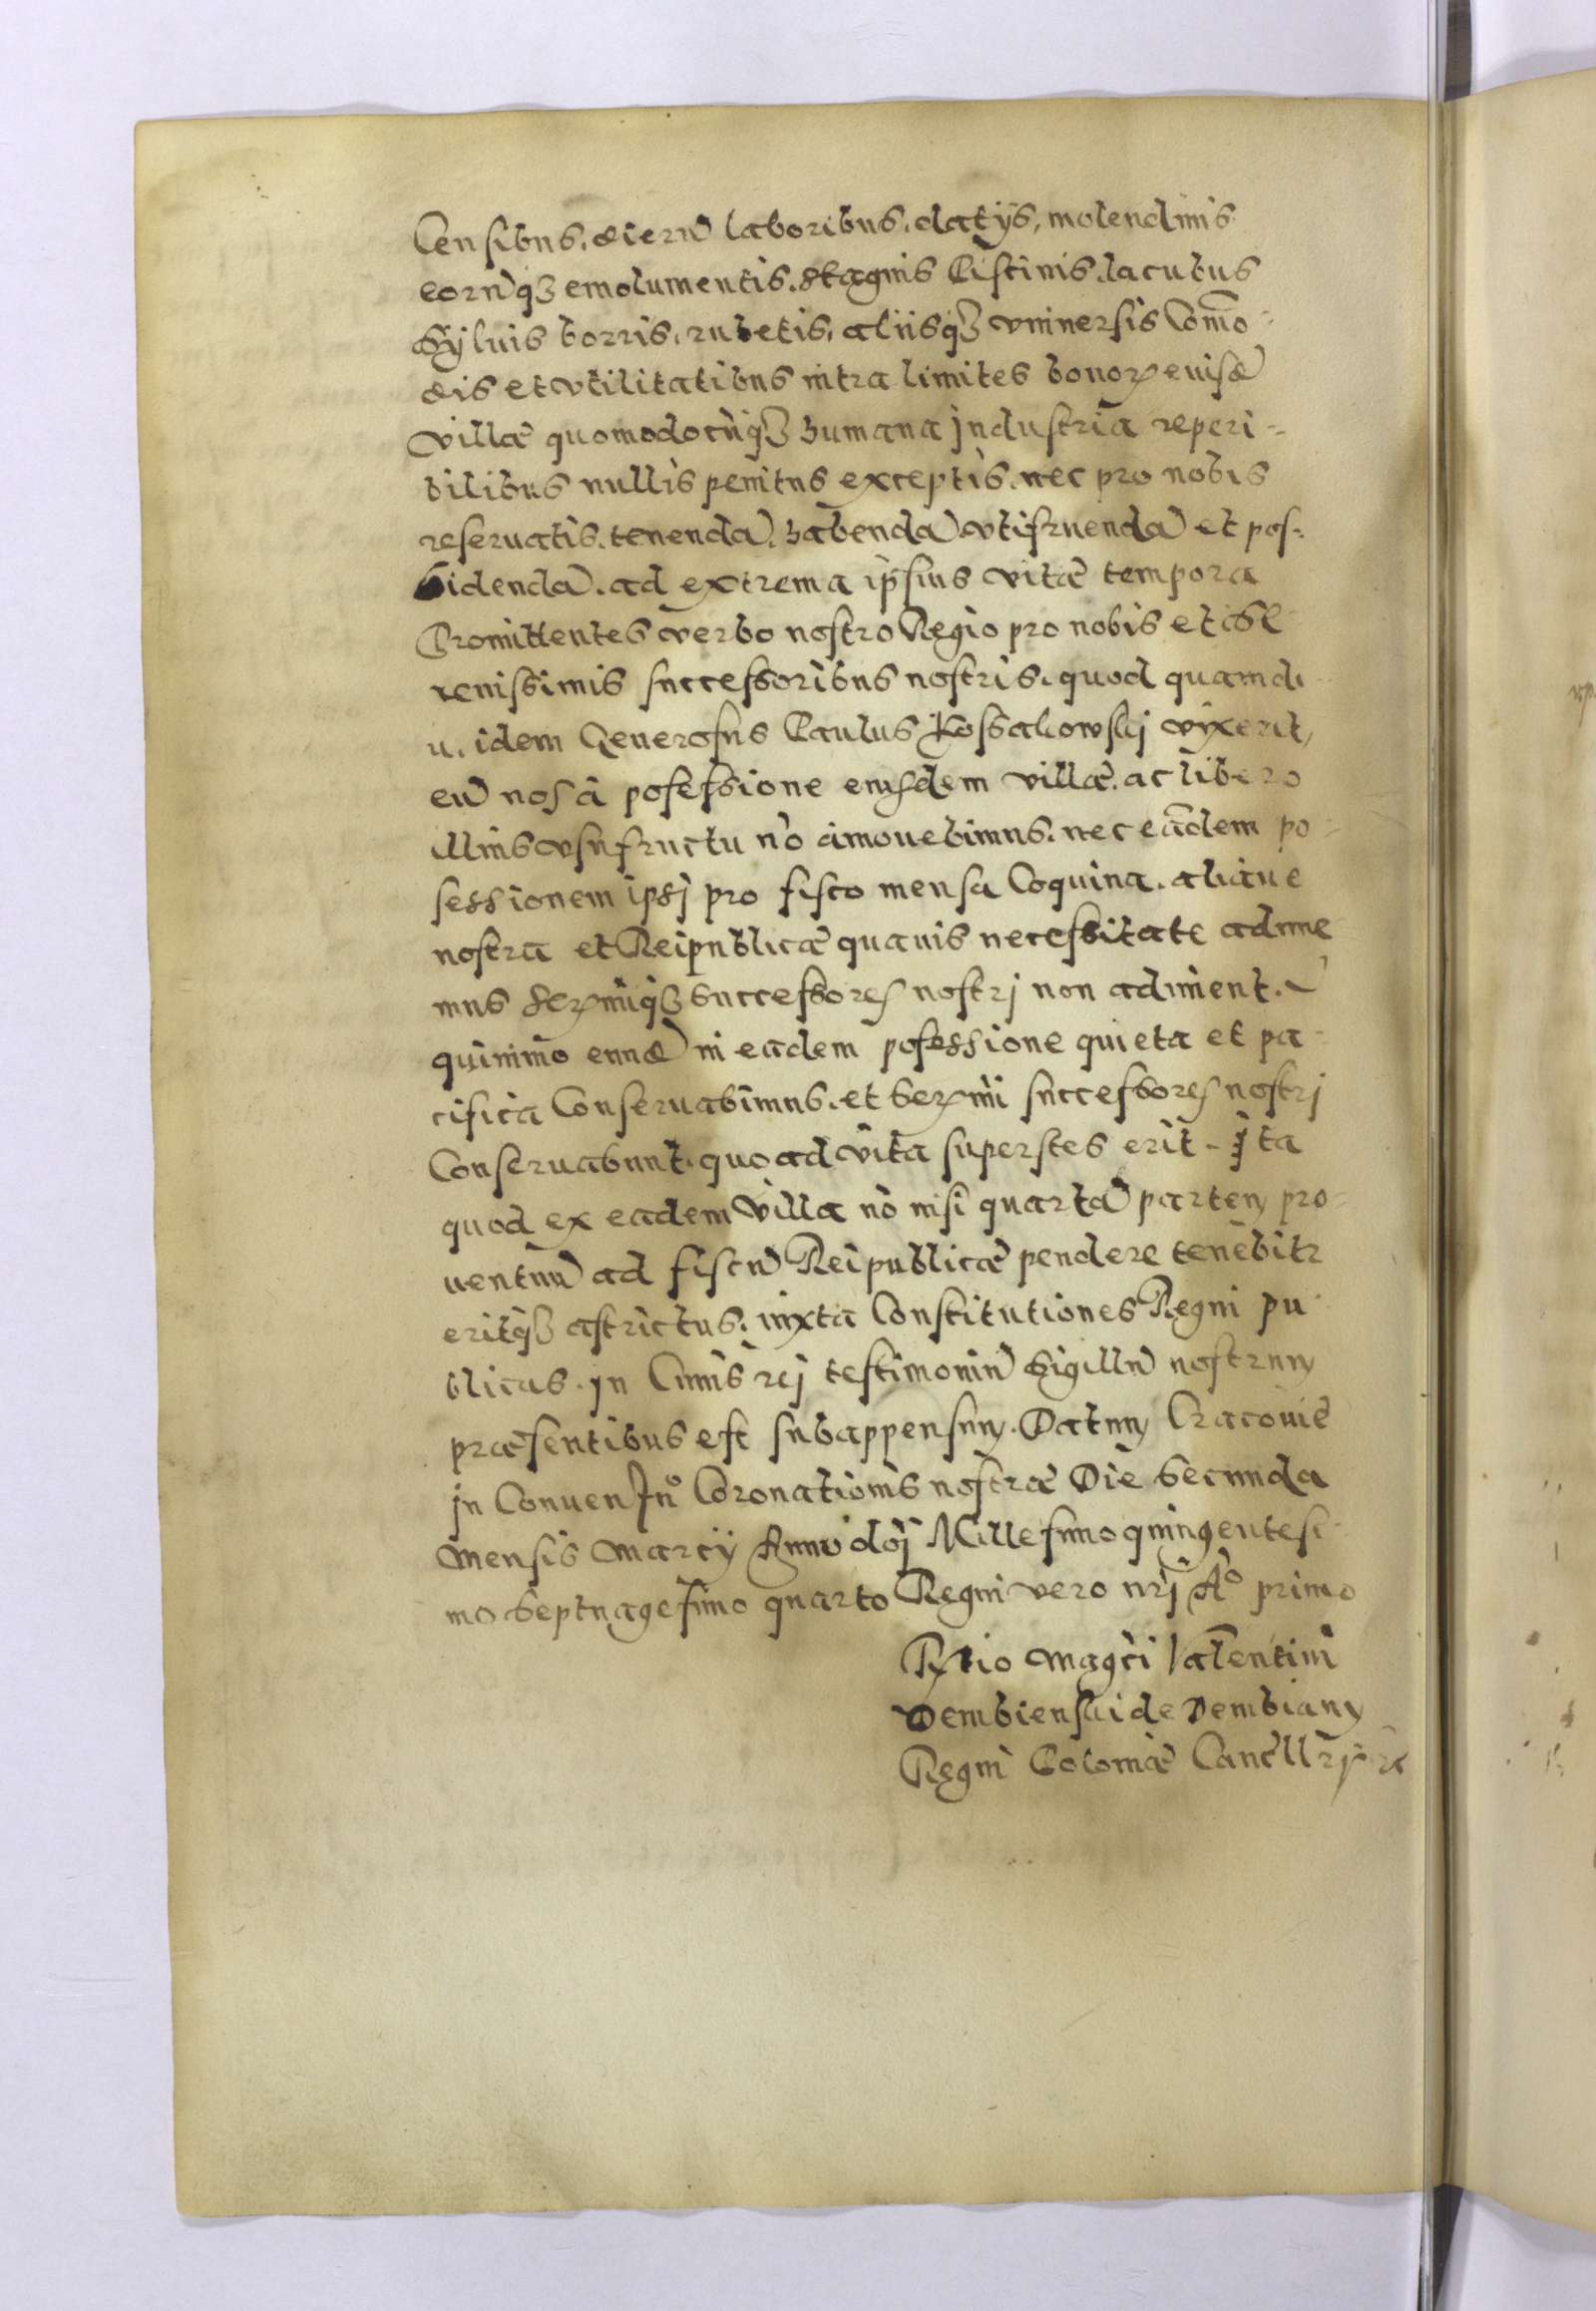 Censibus, eierũ laboribus, datÿs, molendinis
eorũqꝫ emolumentis, stagnis Piscinis, lacubus
Syluis borris, rubetis, alijsqꝫ vniuersis Com̃o=
dis et vtilitatibus intra limites bonorꝫ eiusdẽ
villæ quomodocũqꝫ humana jndustria reperi=
bilibus nullis penitus exceptis, nec pro nobis
reseruatis, tenendã, habendã vtifruendã et pos=
sidendã. ad extrema ip̃sius vitæ tempora
Promittentes verbo nostro Regio pro nobis et Se
renissimis successoribus nostris, quod quamdi
u, idem Generosus Paulus Kossakowskj vixerit,
eũ nos à posessione eiusdem villæ, ac libero
illius vsufructu nõ amouebimus, nec eãdem po=
sessionem ipsj pro fisco mensa Coquina, aliaue
nostra et Reipublicæ quauis necessitate adime
mus Serꝫmiqꝫ Successores nostrj non adiment.
quinimo eundẽ in eadem posessione quieta et pa=
cifica Conseruabimus, et Serꝫmi successores nostrj
Conseruabunt, quoad vita superstes erit – jta
quod ex eadem villa nõ nisi quartã partem pro=
uentuũ ad fiscũ Reipublicæ pendere tenebitr
eritqꝫ astrictus, iuxta Constitutiones Regni pu
blicas. jn Cuius rej testimoniũ Sigillũ nostrum
præsentibus est subappensum. Datum Cracouie
jn Conuentuº Coronationis nostræ Die Secunda
Mensis Marcÿ Anno dñj Millesimo quingentesi
mo Septuagesimo quarto Regni vero nr̃j Aº primo
Rƺtio Magci Valentini
Dembienski de Dembiany
Regni Poloniæ Cancllrÿ